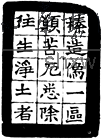 造像一區
願苦厄悉除
往生淨土者